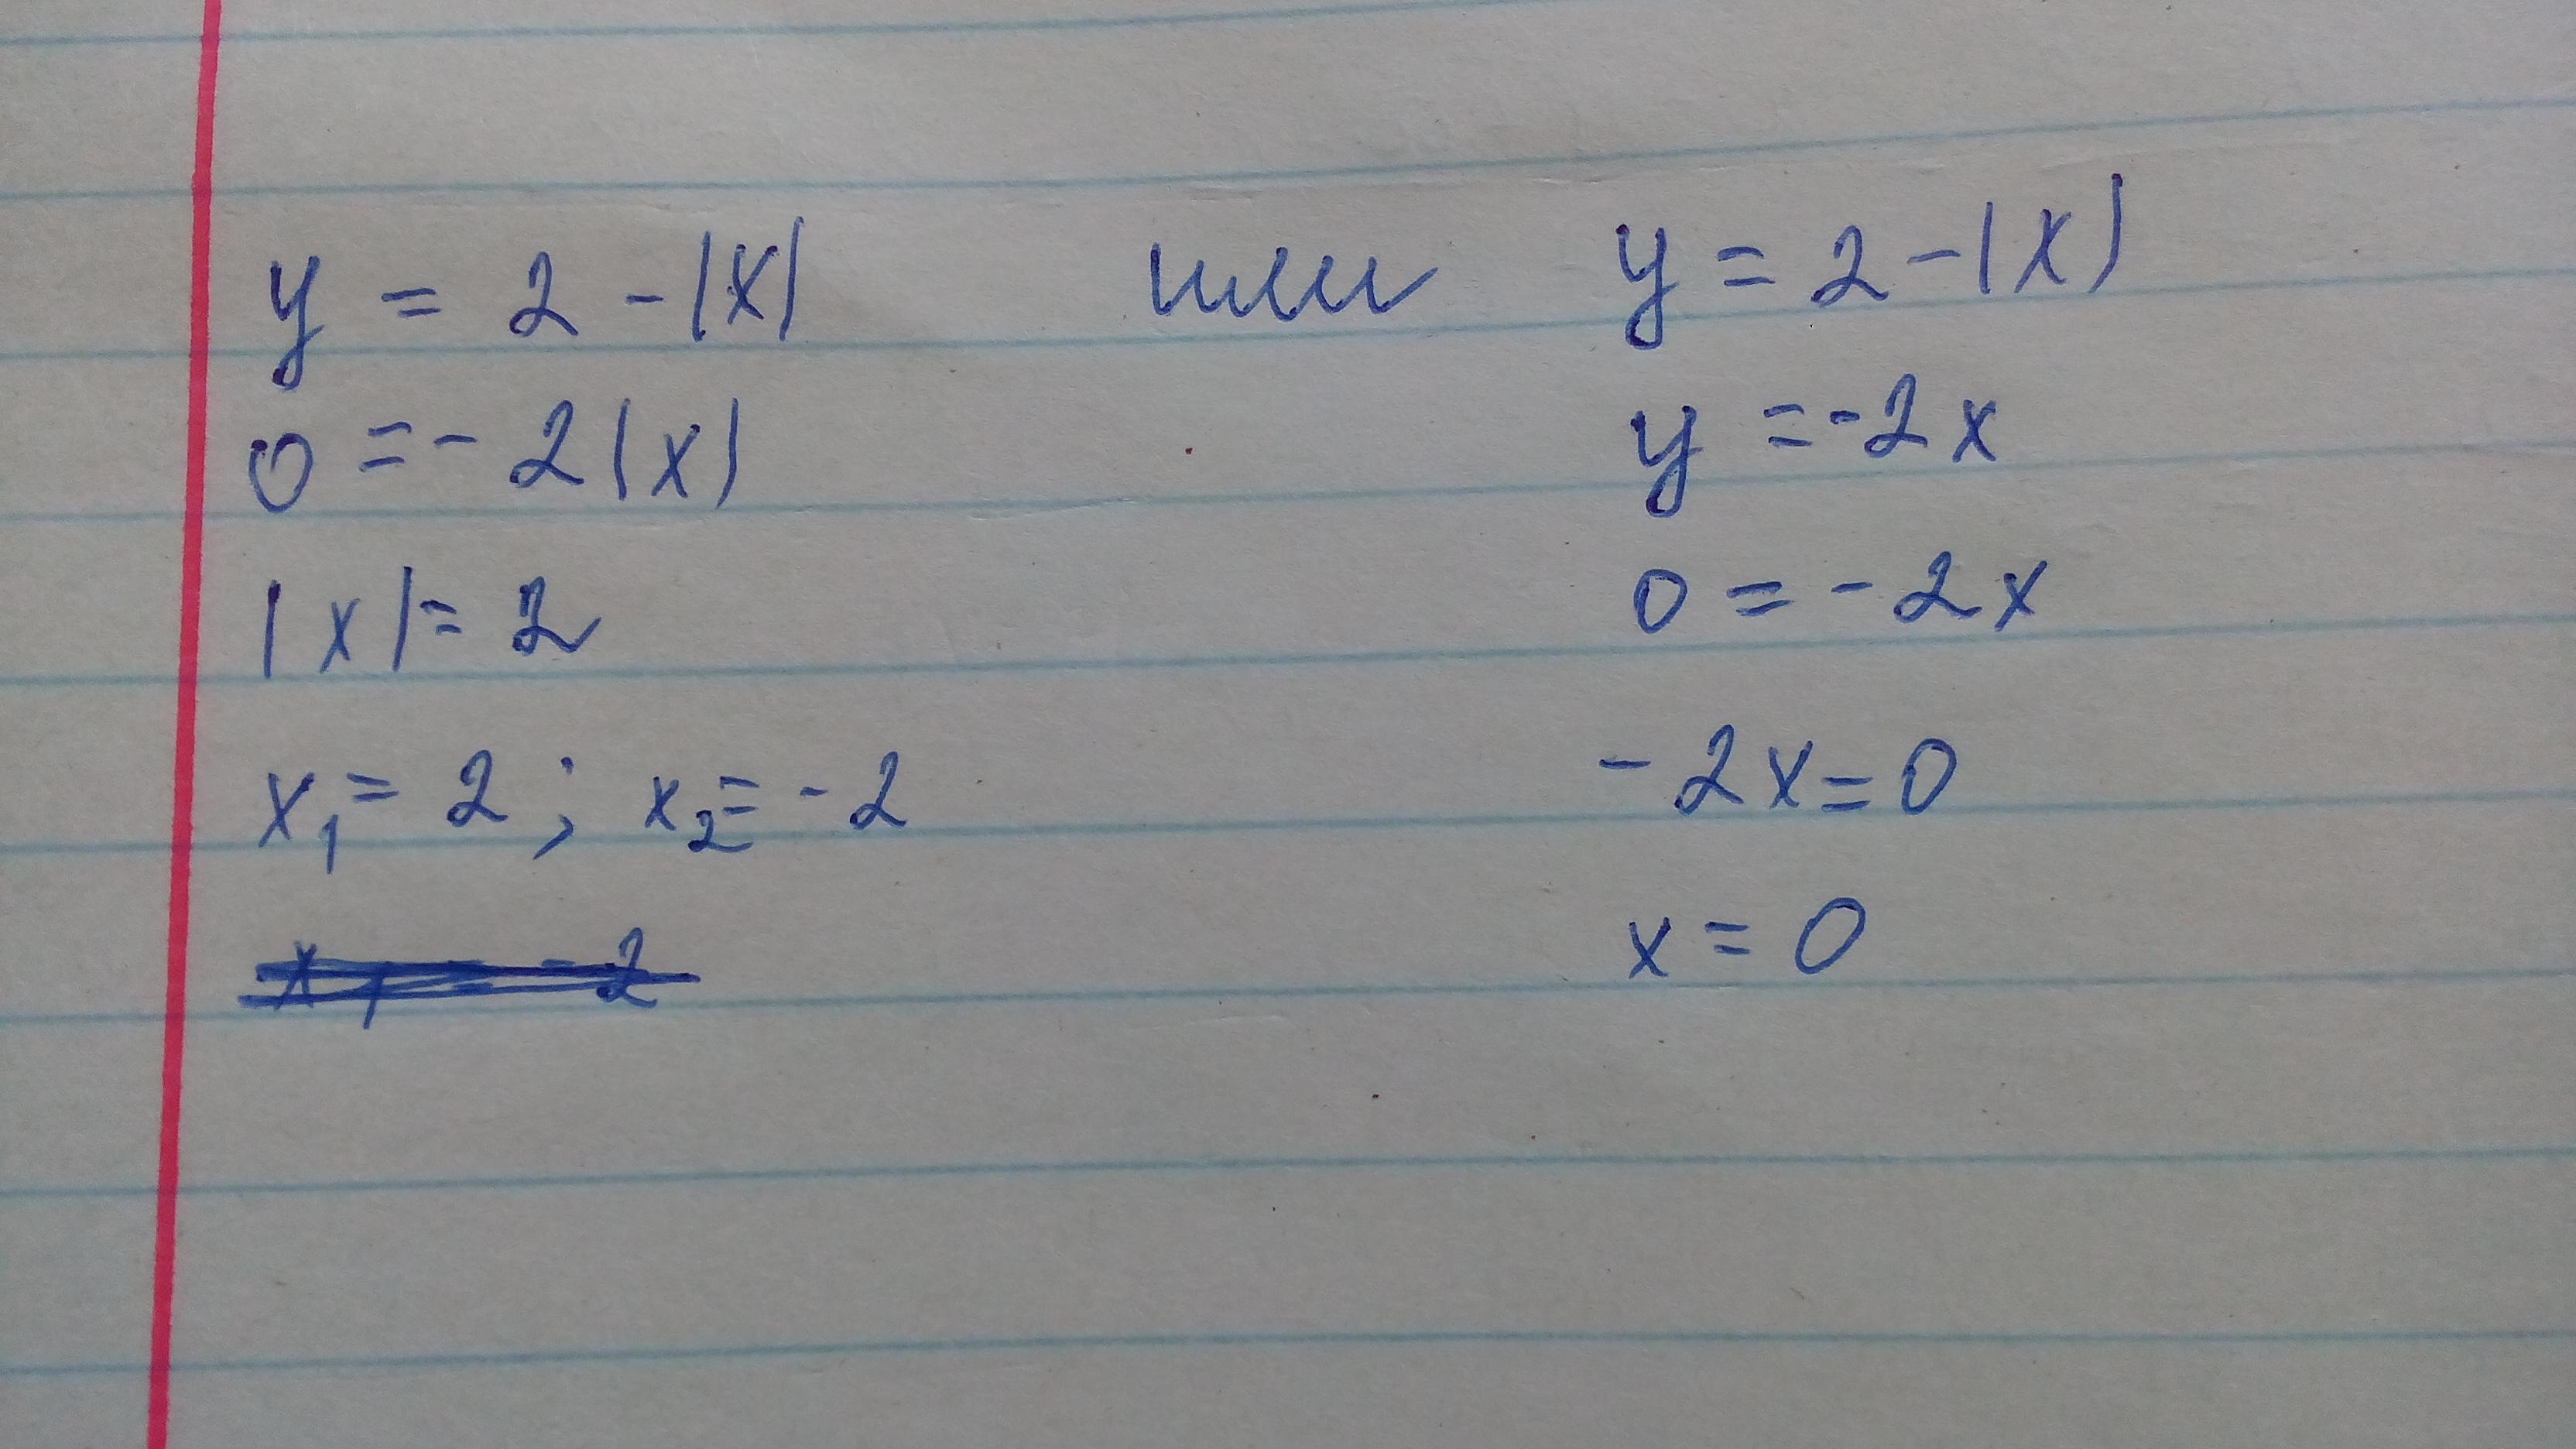 y = 2 - |x| или y = 2 - |x|
0 = - 2|x| y = - 2x
|x| = 2 0 = - 2x
x₁ = 2 ; x₂ = - 2 - 2x = 0
x = 0